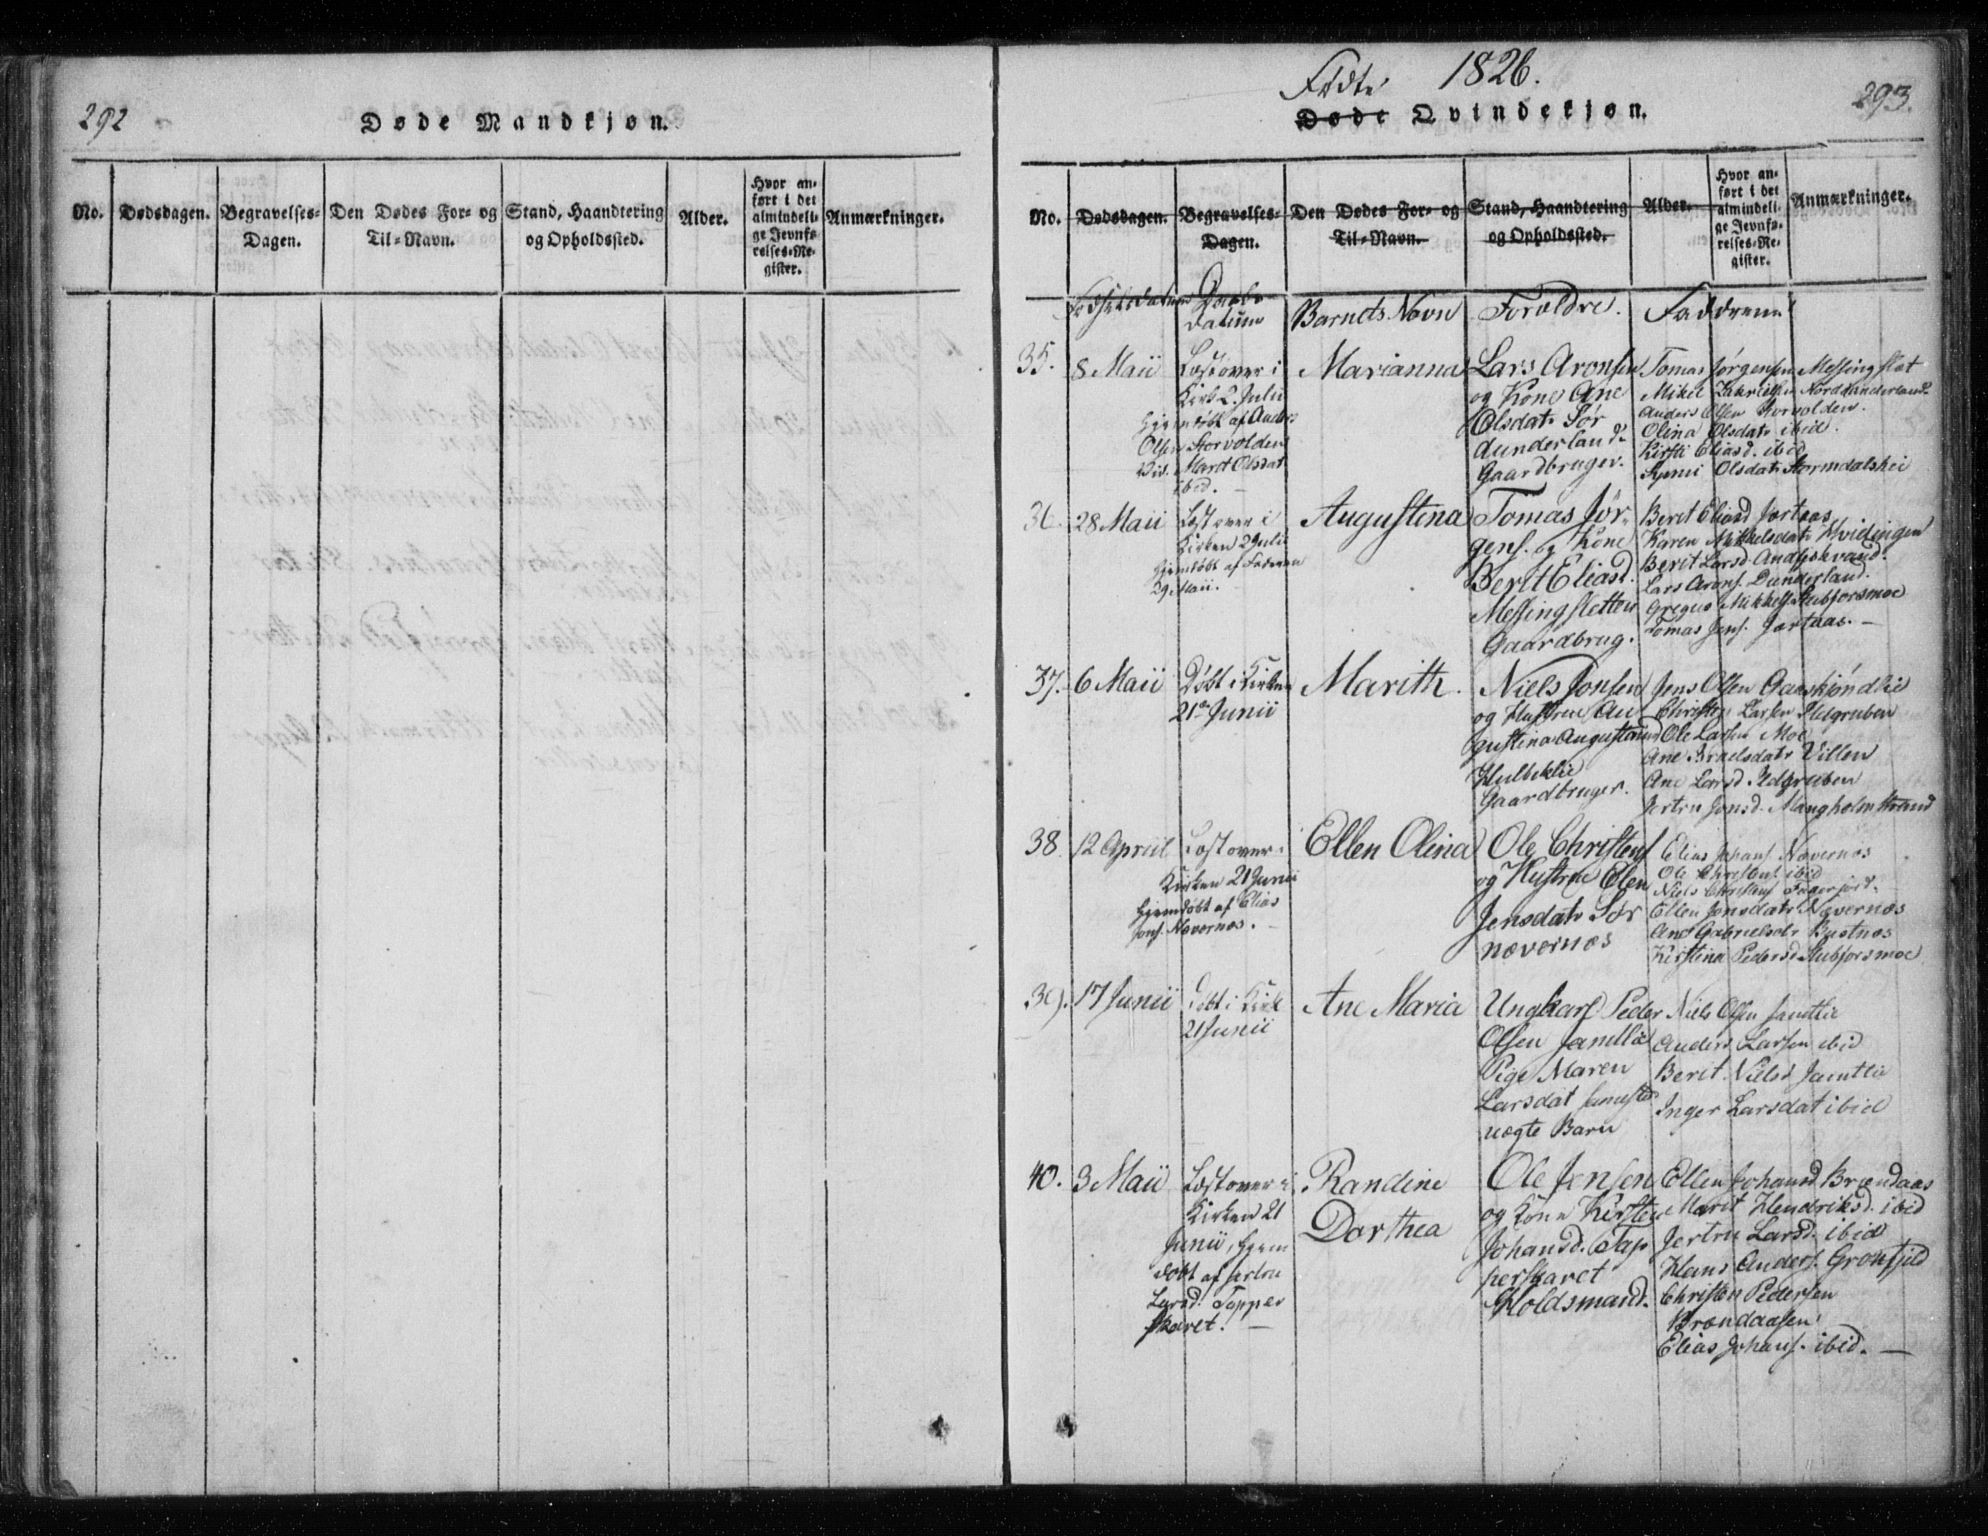 292
Døde Mandkjøn.
No.
Dødsdagen.
Begravelses-
Dagen.
Den Dødes For- og
Til-Navn.
Stand, Haandtering
og Opholdssted.
Alder.
Hvor an-
ført i det
almindeli-
ge Jevnfø-
relses-Re-
gister.
Anmærkninger.
1826.
293.
Fødte
Døde Qvindekjøn.
No.
Dødsdagen.
Begravelses-
Dagen.
Den Dødes For- og
Til-Navn.
Stand, Haandtering
og Opholdssted.
Alder.
Hvor an-
ført i det
almindeli-
ge Jevnfø-
relses-Re-
gister.
Anmærkninger.
Fødselsdatum
Daabs
datum
Barnets Navn
Forældre.
Faddrene
35.
8 Maii
Læst over i
Kirk 2. Julii
Hjemdøbt af Anders
Olsen Storvolden
Vid. Marit Olsdat
ibid.
Marianna
Lars Aronsen
og Kone Ane
Olsdatr Sør
dunderland
Gaardbruger.
Tomas Jørgensen Messingslæt
Mikel Zakrielsen Norddunderland
Anders Olsen Storvolden.
Olina Olsdatr ibid.
Kirsti Eliasd. ibid
Olsdatr Stormdalshei
36.
28 Maii
Læst over i
Kirken 2 Julii
Hjemdøbt af Faderen
29 Maii.
Augustina
Tomas Jør-
gens. og Kone
Berit Eliasd.
Messingsletten
Gaardbrug.
Berit Eliasd Jartaas
Karen Mikkelsdatr Hvidingen
Berit Larsd Andfiskvand.
Lars Arons. Dunderland.
Gregus Mikkels Stubforsmoe
Tomas Jens. Jartaas. —
37.
6 Maii
Døbt i Kirken
21de Junii
Marith.
Niels Jonsen
og Hustrue Au
gustina Augustinusd
Hulbeklie
Gaardbruger.
Jens Olsen Aaenskjøndlie
Christen Larsen Ildgruben
Ole Larsen Moe
Ane Israelsdatr Villen
Ane Larsd. Ildgruben
Jertru Jonsd. Mangholmstrand
38.
12 Apriil
Læst over i
Kirken 21 Junii
Hjemdøbt af Elias
Jons. Nævernæs.
Ellen Olina
Ole Christens
og Hustrue Elen
Jensdatr Sør
nævernæs
Elias Johans Nævernæs
Ole Christens. ibid
Niels Christens
Ellen Jonsdatr Nævernæs
Ane Gabrielsdr Bustnæs
Kirstina Pedersd Stubforsmoe
39.
17 Junii
Døbt i Kirk
21 Junii
Ane Maria
Ungkarl Peder
Olsen Jamtlie
Pige Maren
Larsdat
uægte Barn
Niels Olsen Jamtlie
Anders Larsen ibid
Berit Nielsd Jamtlie
Inger Larsdat ibid
40.
3 Maii
Læst over i
Kirken 21
Junii, hjem
døbt af Jertru
Larsd. Tapper
skaret. —
Randine
Dorthea
Ole Jensen
og Kone Kirsten
Johansd. Tap
perskaret
Holdsmand.
Ellen Johansd. Brændaas
Marit Hendriksd. ibid
Jertru Larsd. ibid
Hans Anders. Grønfjeld
Christen Pedersen
Brændaasen
Elias Johans. ibid. —